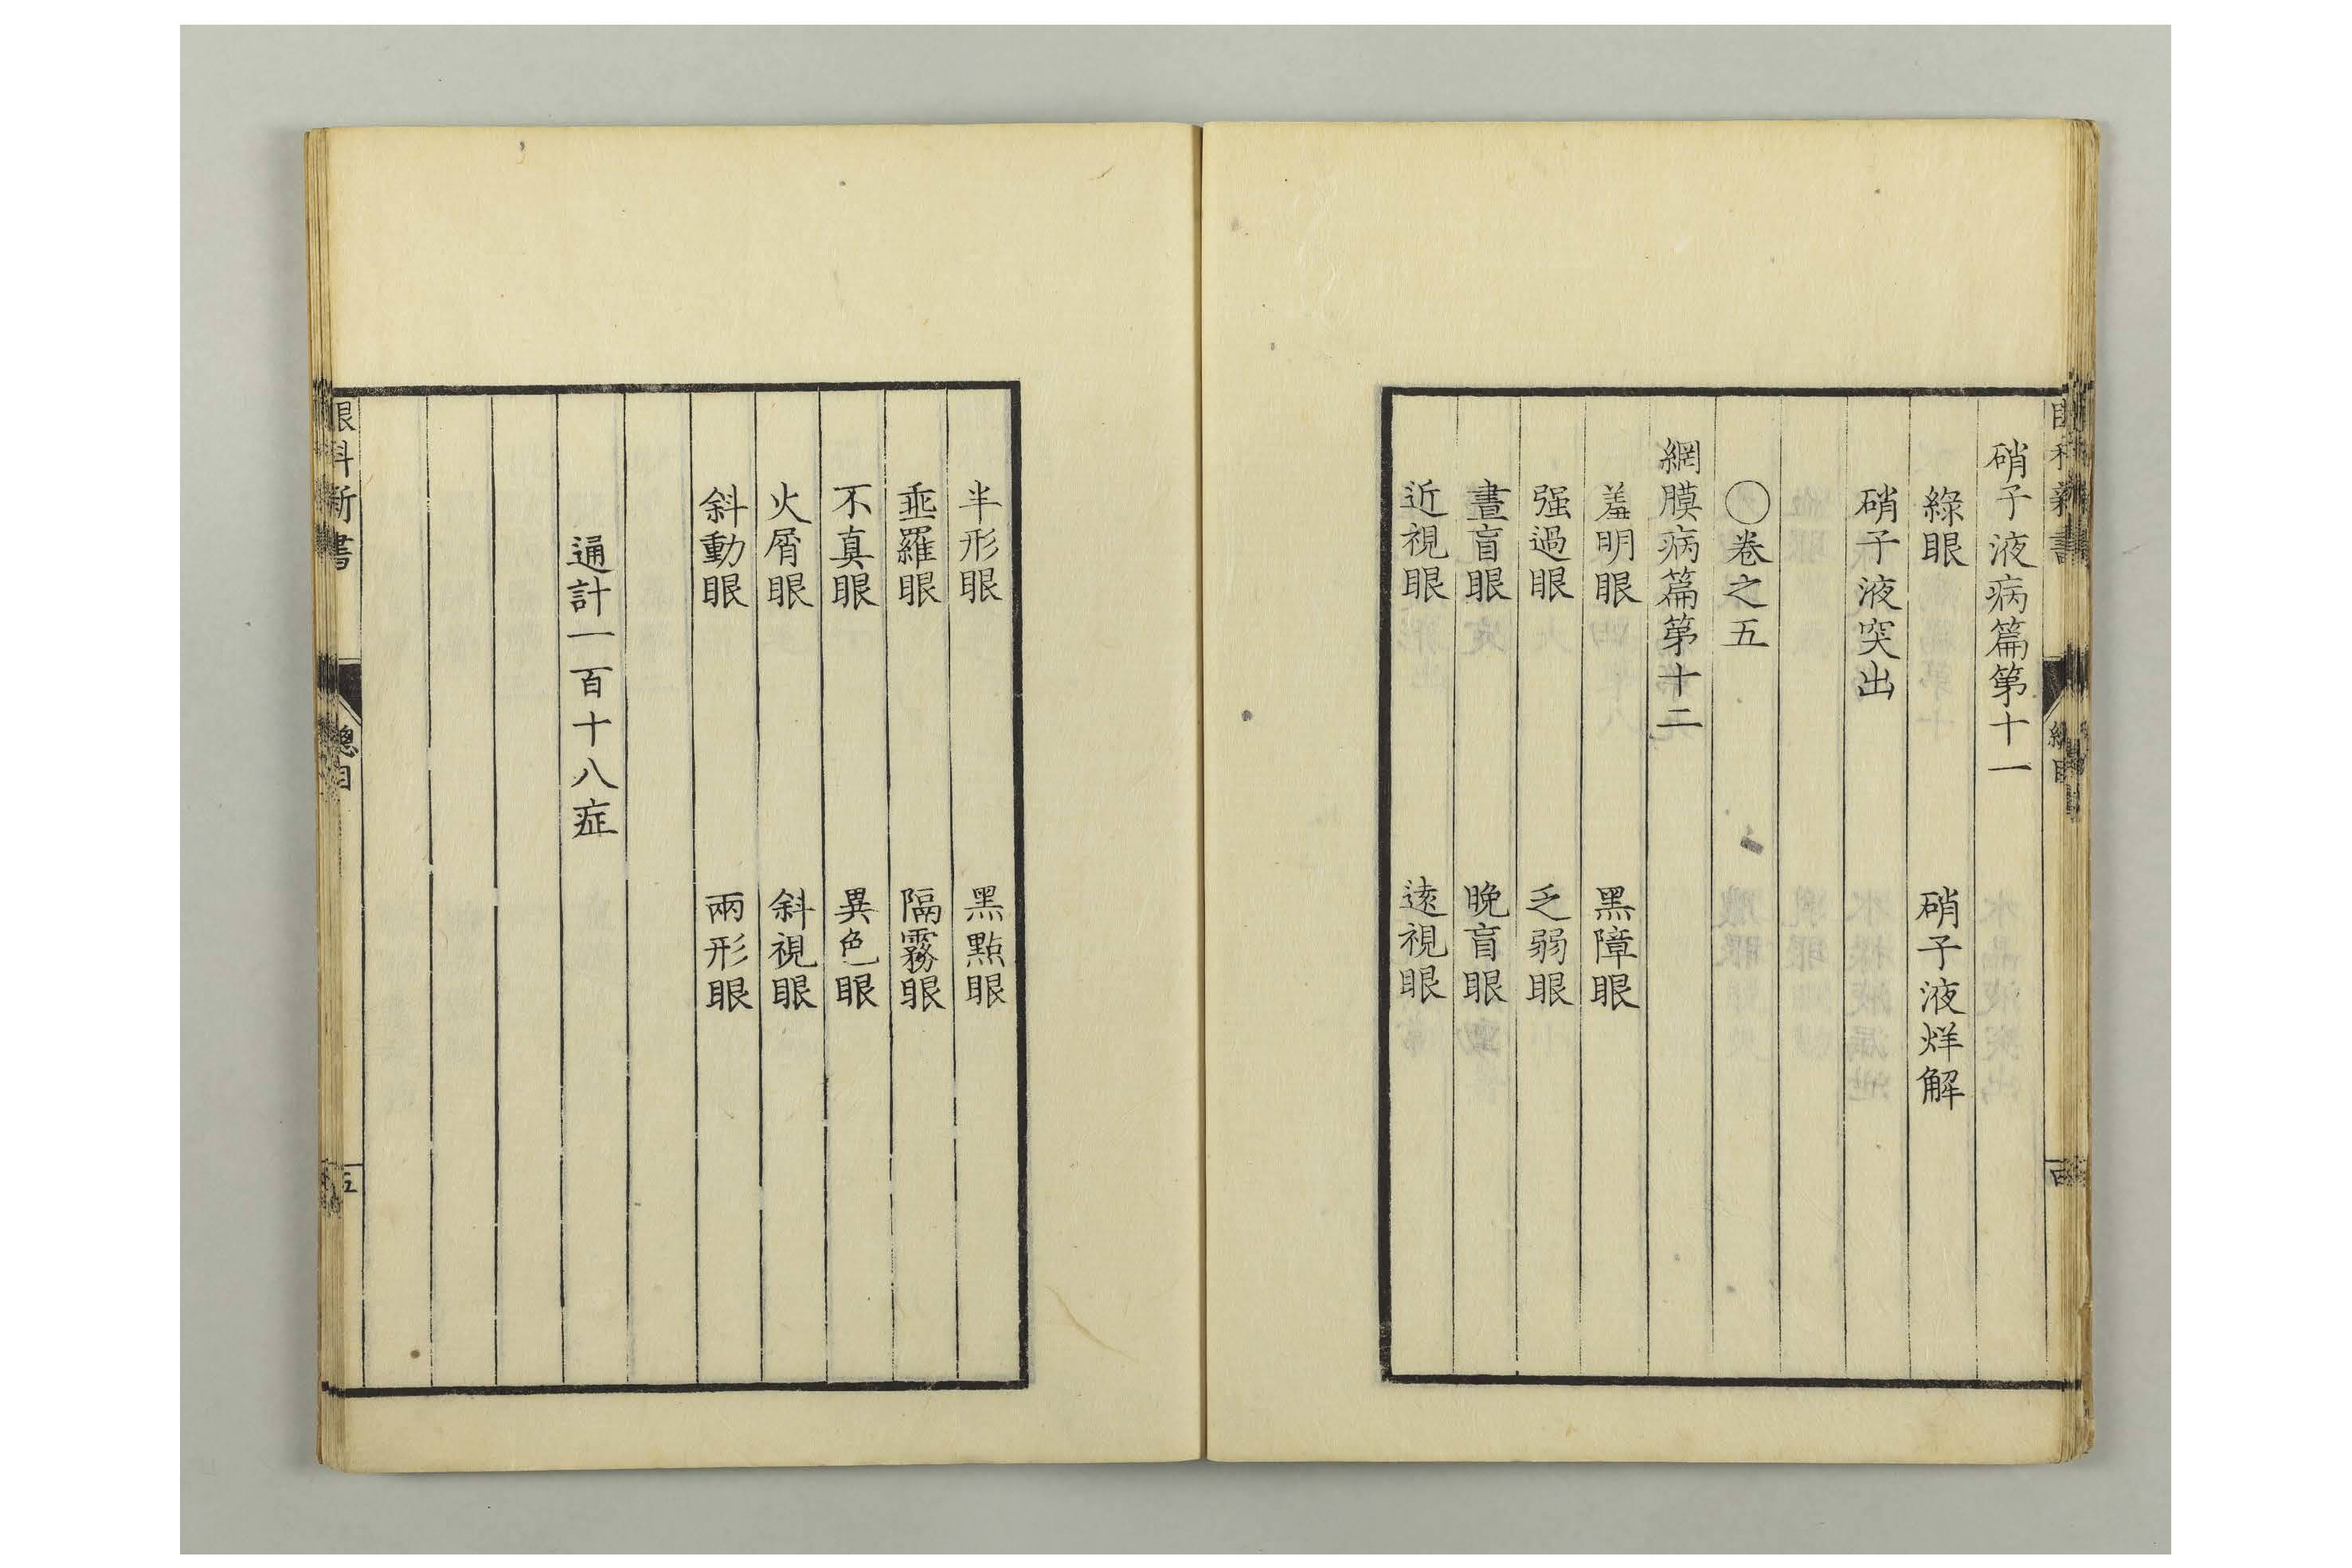 硝子液病篇第十一
綠眼　硝子液烊解
硝子液突出
〇卷之五
網膜病篇第十二
羞明眼　黑障眼
强過眼　乏弱眼
晝盲眼　晚盲眼
近視眼　遠視眼
半形眼　黑點眼
亜羅眼　隔霧眼
不真眼　異色眼
火屑眼　斜視眼
斜動眼　兩形眼
通計一百十八症
眼科新書　總目　五